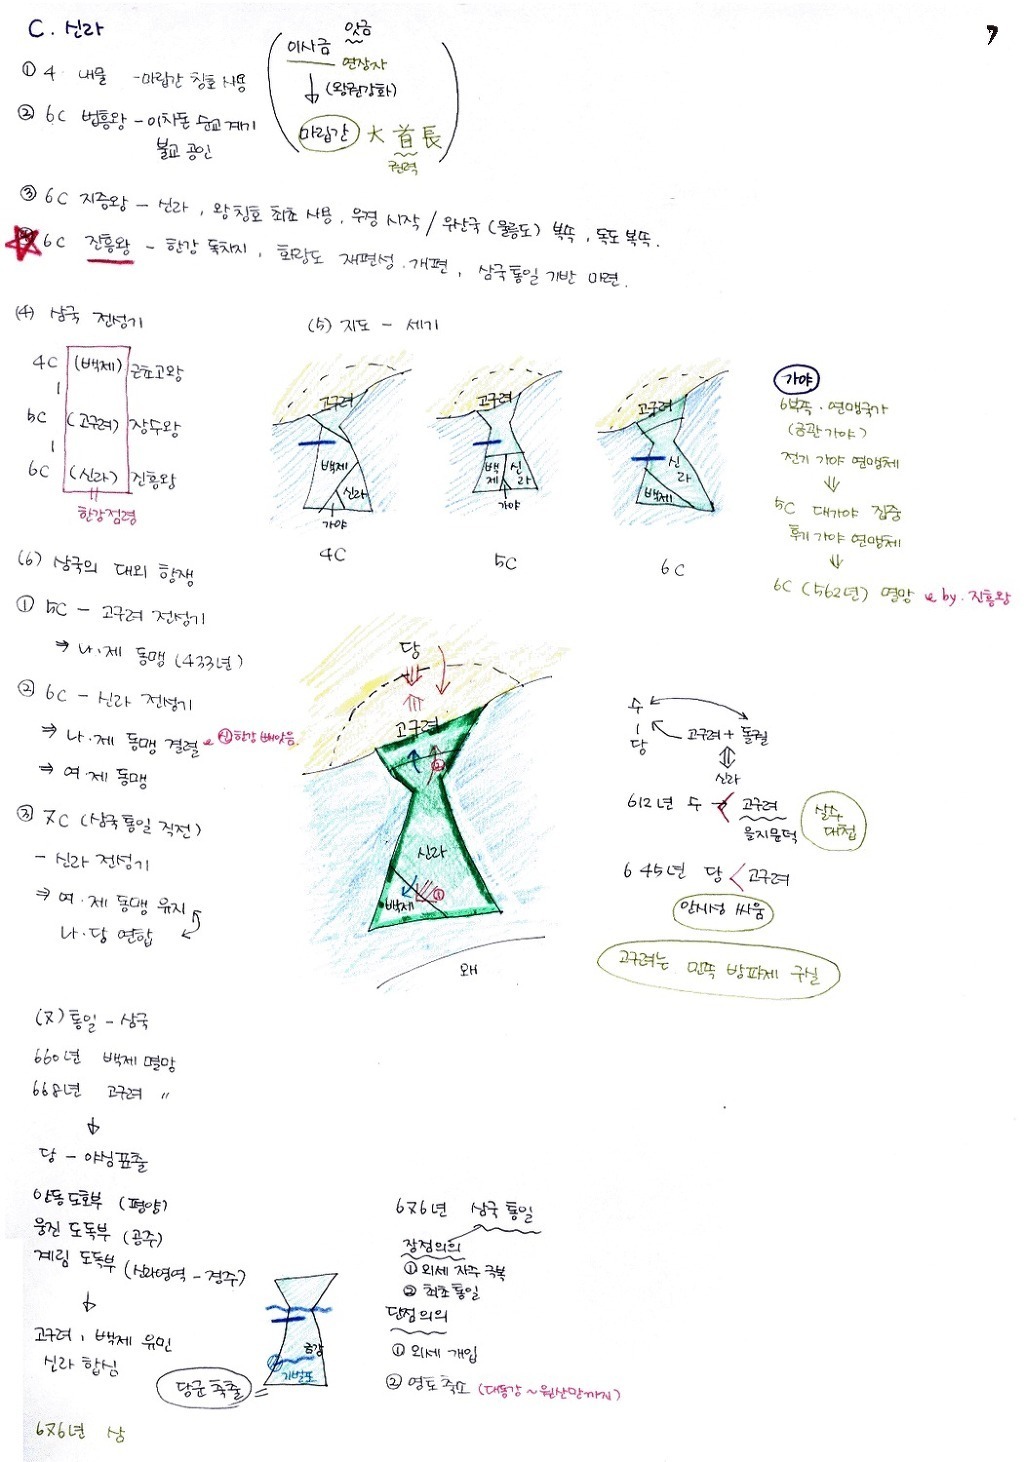 C. 신라
7
① 4 내물 - 마립간 칭호 사용
② 6C 법흥왕 - 이차돈 순교 계기
불교 공인
잇금
이사금
연장자
↓ (왕권강화)
마립간 大首長
권력
③ 6C 지증왕 - 신라, 왕 칭호 최초 사용, 우경 시작 / 우산국 (울릉도) 복속, 독도 복속.
6C 진흥왕 - 한강 독차지, 화랑도 재편성. 개편, 삼국통일 기반 마련.
(4) 삼국 전성기
4C (백제) 근초고왕
5C (고구려) 장수왕
6C (신라) 진흥왕
한강점령
(5) 지도 - 세기
고구려
백제
신라
가야
4C
고구려
백제
신라
가야
5C
고구려
신라
백제
6C
가야
6부족. 연맹국가
(금관가야)
전기 가야 연맹체
⇓
5C 대가야 집중
후기 가야 연맹체
⇓
6C (562년) 멸망 ← by. 진흥왕
(6) 삼국의 대외 항쟁
① 5C - 고구려 전성기
⇒ 나·제 동맹 (433년)
② 6C - 신라 전성기
⇒ 나·제 동맹 결렬 ← 신 한강 빼앗음.
⇒ 여·제 동맹
③ 7C (삼국통일 직전)
- 신라 전성기
⇒ 여·제 동맹 유지
나·당 연합
당
고구려
②
신라
백제
①
왜
수
당
고구려 + 돌궐
신라
612년 수 → < 고구려
을지문덕
살수대첩
645년 당 < 고구려
안시성 싸움
고구려는 민족 방파제 구실
(7) 통일 - 삼국
660년 백제 멸망
668년 고구려 〃
↓
당 - 야심표출
안동도호부 (평양)
웅진 도독부 (공주)
계림 도독부 (신라영역 - 경주)
↓
고구려, 백제 유민
신라 합심
당군 축출
금강
기벌포
676년 삼국 통일
장점의의
① 외세 자주 극복
② 최초 통일
단점의의
① 외세 개입
② 영토축소 (대동강 ~ 원산만까지)
676년 삼